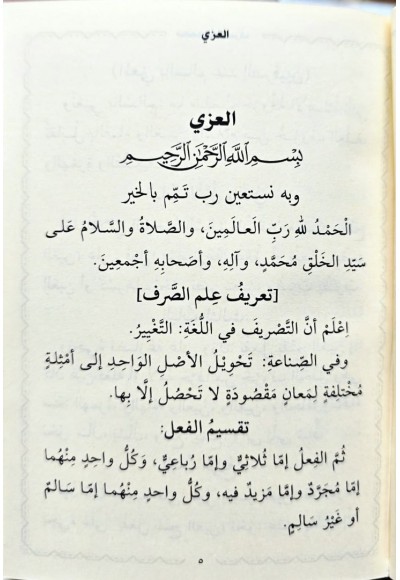 العزي
العزي
بِسْمِ اللَّهِ الرَّحْمٰنِ الرَّحِيمِ
وبه نستعين رب تَمِّم بالخير
الْحَمْدُ للهِ رَبِّ العَالَمِينَ، والصَّلاةُ والسَّلامُ عَلى
سَيِّدِ الخَلْقِ مُحَمَّدٍ، وَآلِهِ، وأَصْحَابِهِ أَجْمَعِينَ.
[تعريفُ عِلمِ الصَّرف]
اِعْلَمْ أنَّ التَّصْرِيفَ في اللُّغَةِ: التَّغْيِيرُ.
وفي الصِّناعةِ: تَحْوِيْلُ الأصْلِ الوَاحِدِ إلى أمْثِلةٍ
مُخْتلِفةٍ لِمَعانٍ مَقْصُودَةٍ لا تَحْصُلُ إلَّا بِها.
تقسيمُ الفعل:
ثُمَّ الفِعلُ إمَّا ثُلاثِيٌّ وإمَّا رُباعِيٌّ، وَكُلُّ واحدٍ مِنْهُما
إمَّا مُجَرَّدٌ وإمَّا مَزِيدٌ فيه، وَكُلُّ واحدٍ مِنْهُما إمَّا سَالمٌ
أو غَيْرُ سَالِمٍ.
٥